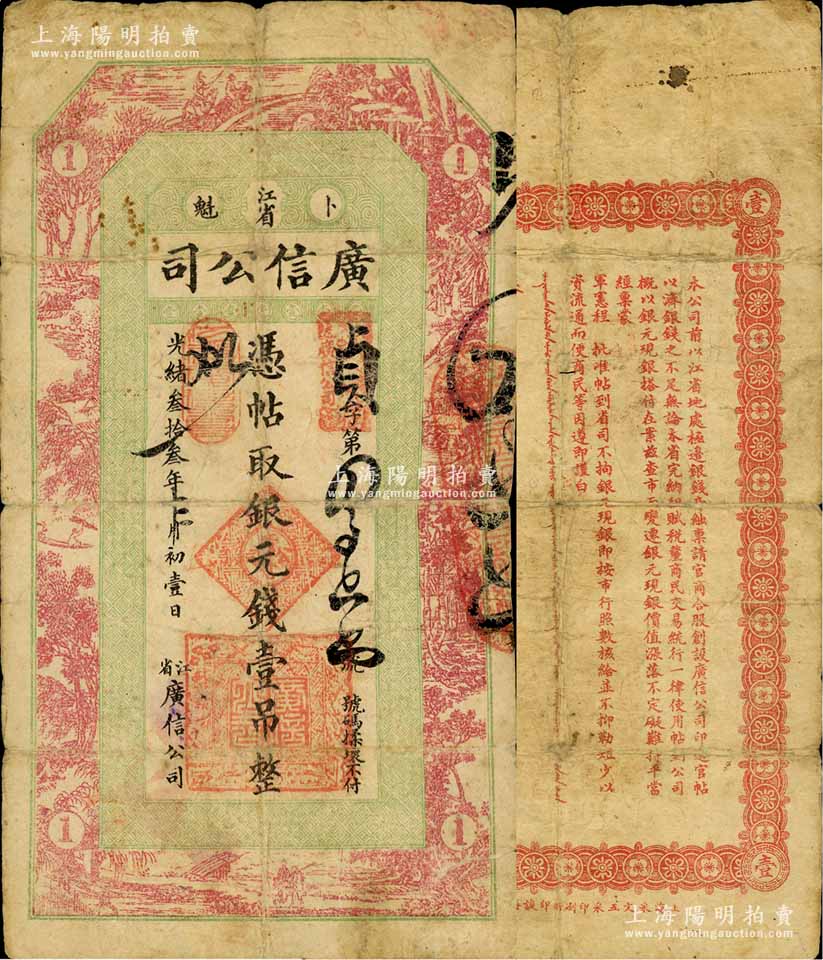 上海陽明拍賣
www.yangmingauction.com
1
1
卜
江省
魁
廣信公司
字第
號
號碼揉壞不付
憑帖取銀元錢壹吊整
光緒叁拾叁年 月初壹日
江省廣信公司
1
1
上海陽明拍賣
www.yangmingauction.com
壹
本公司前以江省地處極邊銀錢 絀票請官商合股創設廣信公司印造官帖
以濟銀錢之不足無論本省完納租賦稅釐商民交易統行一律使用帖到公司
概以銀元現銀搭付在案茲查市面變遷銀元現銀價值漲落不定礙難持平當
經稟蒙
軍憲程 批准帖到省司不拘銀元現銀即按市行照數核給並不抑勒短少以
資流通而便商民等因遵即護白
壹
五采印刷所印
上海陽明拍賣
www.yangmingauction.com